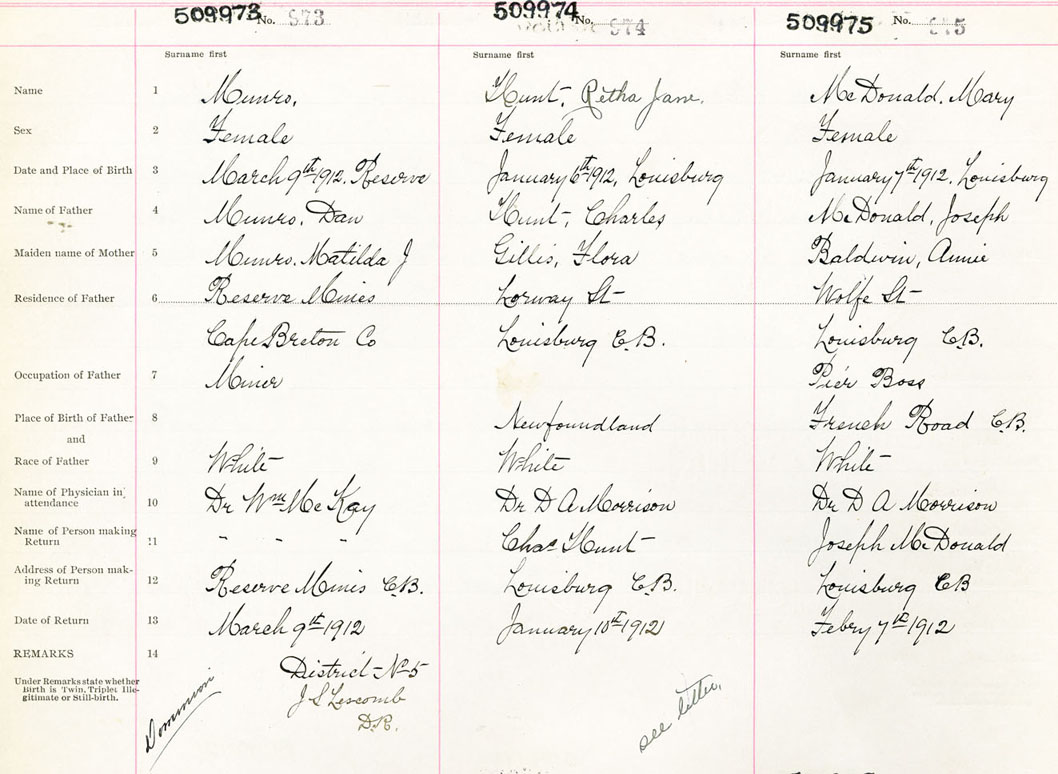 509973 No. 973 509974 No. 974 509975 No. 975
Surname first Surname first Surname first
Name 1 Munro, Hunt, Retha Jane. McDonald. Mary
Sex 2 Female Female Female
Date and Place of Birth 3 March 9th 1912. Reserve January 6th 1912, Louisburg January 7th 1912. Louisburg
Name of Father 4 Munro. Dan Hunt, Charles McDonald, Joseph
Maiden name of Mother 5 Munro. Matilda J Gillis, Flora Baldwin, Annie
Residence of Father 6 Reserve Mines Lorway St Wolfe St
Cape Breton Co Louisburg C.B. Louisburg C.B.
Occupation of Father 7 Miner Pier Boss
Place of Birth of Father 8 Newfoundland French Road C.B.
and
Race of Father 9 White White White
Name of Physician in attendance 10 Dr Wm McKay Dr D A Morrison Dr D A Morrison
Name of Person making Return 11 " " " Chas Hunt Joseph McDonald
Address of Person making Return 12 Reserve Mines C.B. Louisburg C.B. Louisburg CB
Date of Return 13 March 9th 1912 January 10th 1912 Febry 7th 1912
REMARKS 14 District No 5
Under Remarks state whether
Birth is Twin, Triplet, Ille-
gitimate or Still-birth.
J S
D.R.
Dominion
see letter.